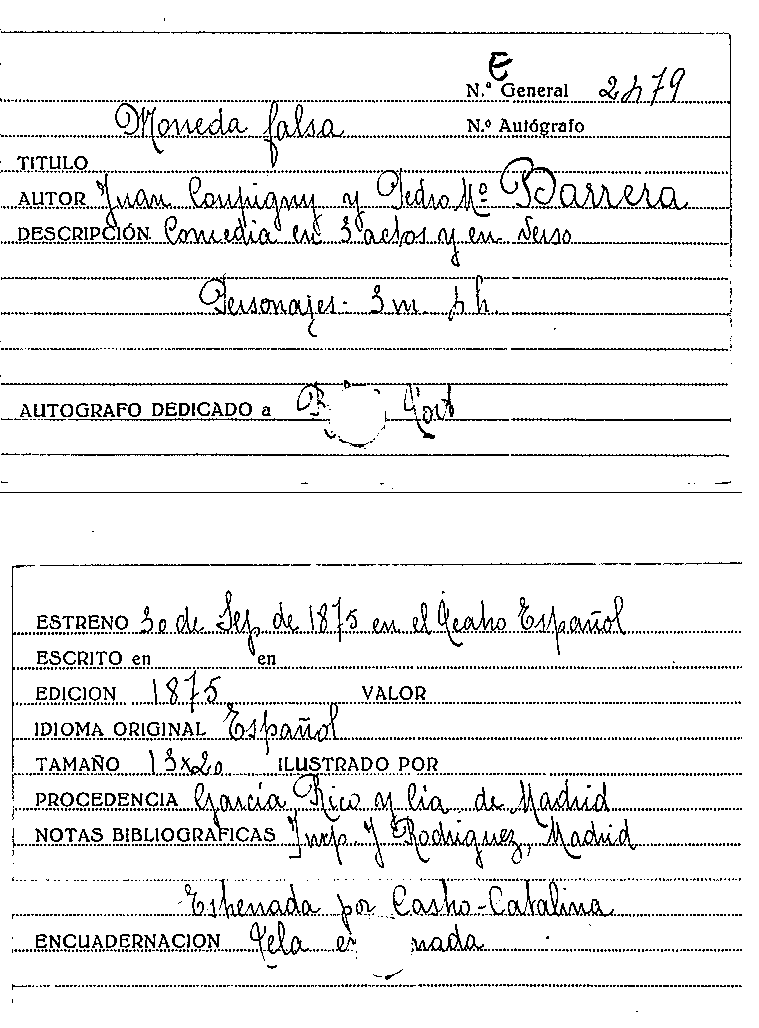 E
N.º General 2479
Moneda falsa N.º Autógrafo
TITULO
AUTOR Juan Coupigny y Pedro Mª Barrera
DESCRIPCIÓN Comedia en 3 actos y en verso
Personajes- 3 m. 4 h.
AUTOGRAFO DEDICADO a
ESTRENO 30 de Sep de 1875 en el Teatro Español
ESCRITO en en
EDICION 1875 VALOR
IDIOMA ORIGINAL Español
TAMAÑO 13x20 ILUSTRADO POR
PROCEDENCIA García Rico y Cía de Madrid
NOTAS BIBLIOGRAFICAS Imp. J Rodriguez, Madrid
Estrenada por Castro-Catalina
ENCUADERNACION Tela nada